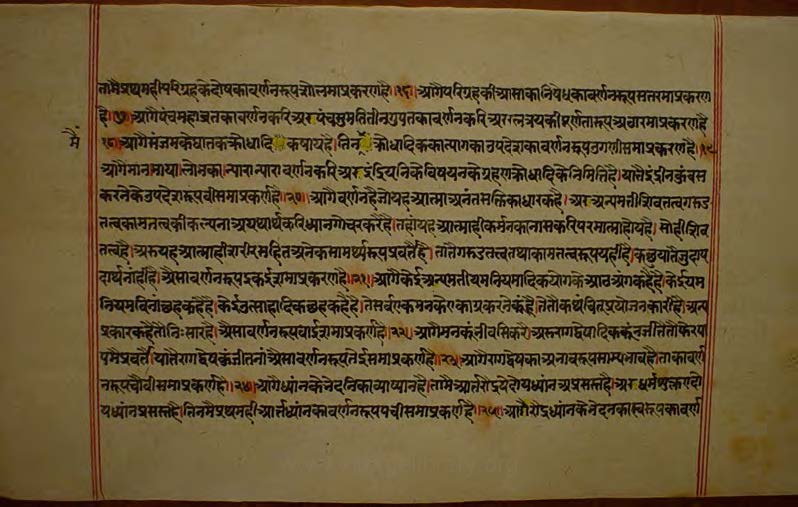 तामै प्रथमही परिग्रहके दोषका वर्णनरूप शोलमा प्रकरण है।।१६।। आगै परिग्रहकी आसाका निषेधका वर्णनरूप सतरमा प्रकरण
है।।१७।। आगै पंचमहाव्रतका वर्णनकरि अर पंचसुमति तीनगुप्तका वर्णनकरि अर रत्नत्रयकी पूर्णतारूप अठारमा प्रकरण है
मैं
१८।। आगै संजमके घातक क्रोधादि कषाय है। तिन क्रोधादिकका त्यागका उपदेशका वर्णनरूप उगणीसमा प्रकरण है।।१९
आगै मान माया लोभका न्यारा न्यारा वर्णनकरि अर इंद्रियनिके विषयनके ग्रहण क्रोधादिके निमित्त है। यातै इंद्रीनकूं वस
करनेके उपदेशरूप वीसमा प्रकर्ण है।।२०।। आगै वर्णन है जो यह आत्मा अनंतसक्तिका धारक है। अर अन्यमती शिवतत्व गरुड
तत्व कामतत्वकी कल्पना अयथार्थ करि ध्यानगोचर करै है। तहां यह आत्मा ही कर्मनका नासकरि परमात्मा होय है। सो ही शिव
तत्व है। अर यह आत्मा ही शरीरसहित अनेक सामर्थ्यरूप प्रवर्तै है। तातै गरुडतत्व तथा कामतत्वरूप यही है। कछु यातै जुदा प
दार्थ नांही है। अैसा वर्णनरूप इकईशमा प्रकरण है।।२१।। आगै केई अन्यमती यम नियमादिक योगके आठ अंग कहै है। केई यम
नियम विना छह कहै है। केई उत्साहादिक छह कहै है। ते सर्व एक मनके एकाग्र करनेकूं है। तेतौ कथंचित प्रयोजनकारी है। अन्य
प्रकार कहै तो निःसार है। अैसा वर्णनरूप वाईशमा प्रकर्ण है।।२२।। आगै मनकूं जीवसि करै अर रागद्वेषादिककूं न जीतै तौ फेर पा
पमै प्रवर्तै। यातै रागद्वेषकूं जीतनां अैसा वर्णनरूप तेईसमा प्रकर्ण है।।२३।। आगै रागद्वेषका अभावरूप साम्यभाव है। ताका वर्ण
नरूप चौवीसमा प्रकर्ण है।।२४।। आगै ध्यांनके भेदनिका व्याख्यान है। तामै आर्त्तरौद्र ये दोय ध्यांन अप्रसस्त है। अर धर्म शुक्ल ए दो
य ध्यांन प्रसस्त है। तिनमै प्रथमही आर्त्तध्यांनका वर्णनरूप पचीसमा प्रकर्ण है।।२५।। आगै रौद्रध्यांनके भेदनका स्वरूपका वर्ण